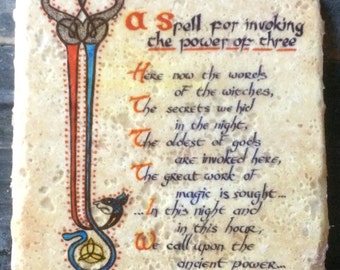 a Spell for invoking
the power of three
Here now the words
of the witches,
The secrets we hid
in the night,
The oldest of gods
are invoked here,
The great work of
magic is sought...
...In this night and
in this hour,
We call upon the
ancient power...